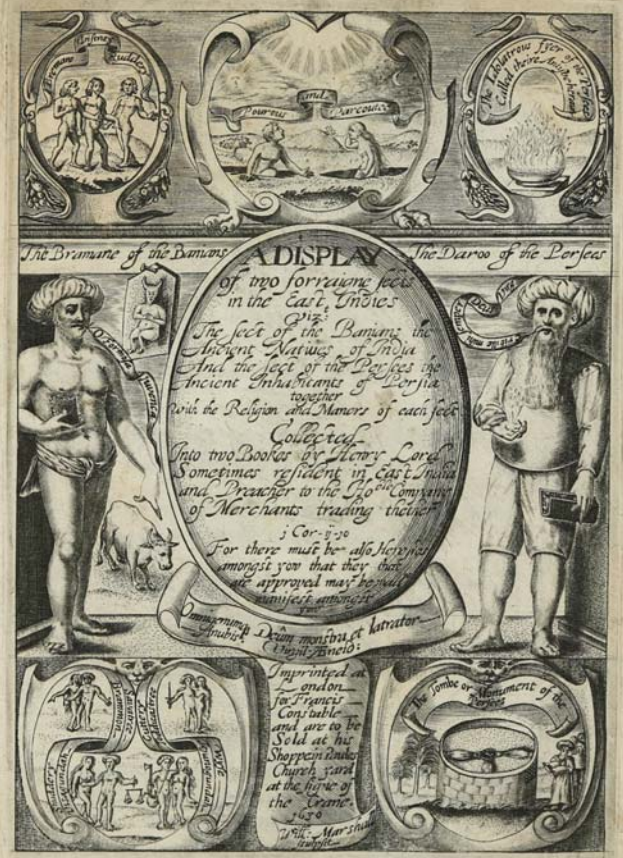 Bremane
Ruddery
Pourous
and
Parcoutee
The Idolatrous fyer of the Persees
Called theire
The Bramane of the Banians
The Daroo of the Persees
A DISPLAY
of two forraigne sects
in the East Indies
Viz:
The sect of the Banians the
Ancient Natives of India
And the sect of the Persees the
Ancient Inhabitants of Persia
together
with the Religion and Maners of each sect
Collected
Into two Bookes by Henry Lord
Sometimes resident in East India
and Preacher to the Hoble Company
of Merchants trading thether
For there must be also Heresies
amongst you that they that
are approved may be made
manifest amongst
you
Omnigenumq
Deûm monstra et latrator
Anubis
Virgil Æneid:
Imprinted at
London
for Francis
Constable
and are to be
Sold at his
Shoppe in Paules
Church yard
at the signe of
the Crane.
1630
Will: Marshall
sculpsit
Brammon
Savatree
The Tombe or Monument of the
Persees